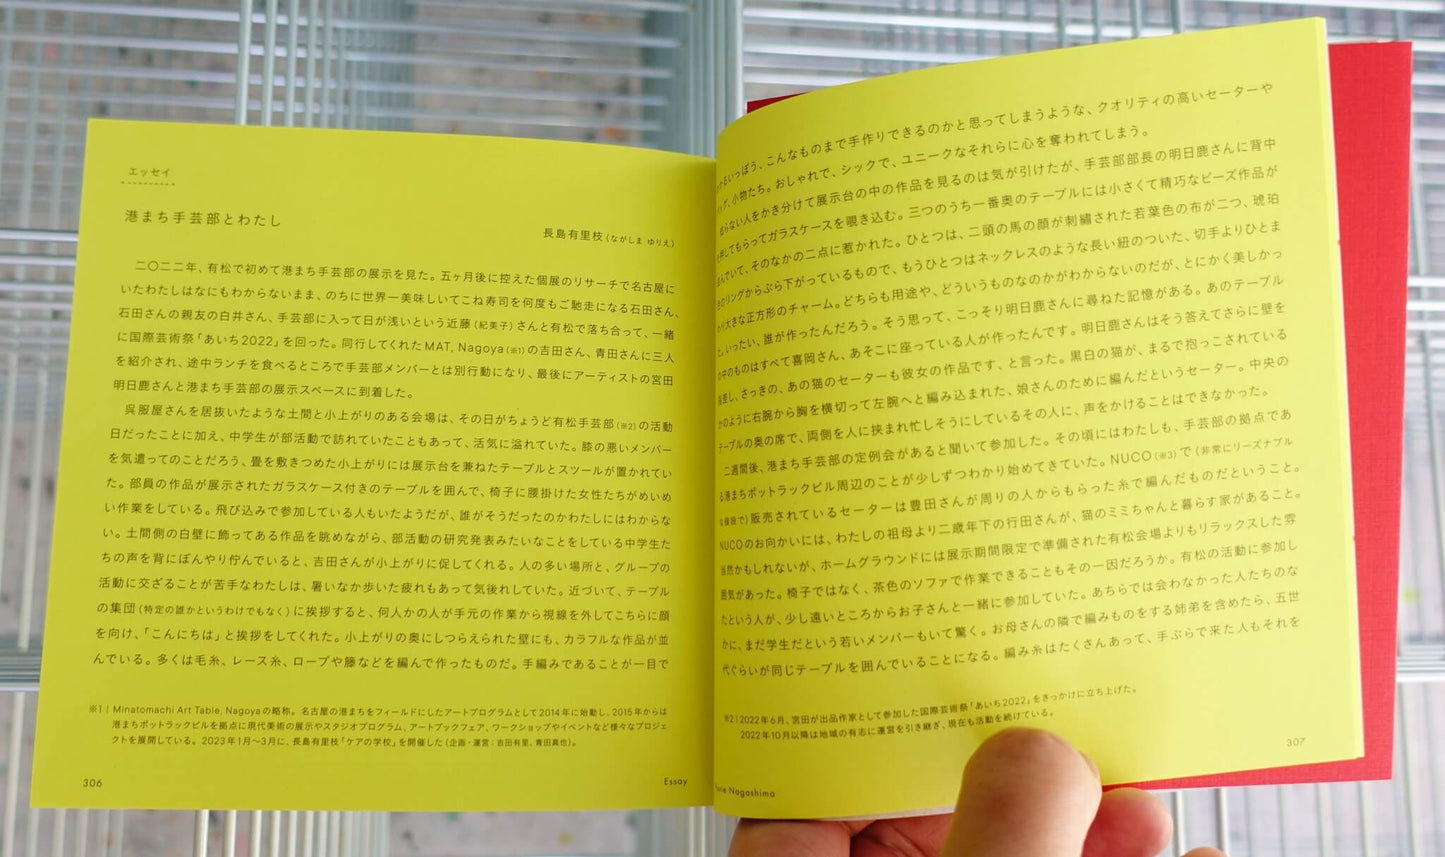 エッセイ
港まち手芸部とわたし
長島有里枝(ながしま ゆりえ)
二〇二二年、有松で初めて港まち手芸部の展示を見た。五ヶ月後に控えた個展のリサーチで名古屋に
いたわたしはなにもわからないまま、のちに世界一美味しいてこね寿司を何度もご馳走になる石田さん、
石田さんの親友の白井さん、手芸部に入って日が浅いという近藤(紀美子)さんと有松で落ち合って、一緒
に国際芸術祭「あいち2022」を回った。同行してくれたMAT, Nagoya(※1)の吉田さん、青田さんに三人
を紹介され、途中ランチを食べるところで手芸部メンバーとは別行動になり、最後にアーティストの宮田
明日鹿さんと港まち手芸部の展示スペースに到着した。
呉服屋さんを居抜いたような土間と小上がりのある会場は、その日がちょうど有松手芸部(※2)の活動
日だったことに加え、中学生が部活動で訪れていたこともあって、活気に溢れていた。膝の悪いメンバー
を気遣ってのことだろう、畳を敷きつめた小上がりには展示台を兼ねたテーブルとスツールが置かれてい
た。部員の作品が展示されたガラスケース付きのテーブルを囲んで、椅子に腰掛けた女性たちがめいめ
い作業をしている。飛び込みで参加している人もいたようだが、誰がそうだったのかわたしにはわからな
い。土間側の白壁に飾ってある作品を眺めながら、部活動の研究発表みたいなことをしている中学生た
ちの声を背にぼんやり佇んでいると、吉田さんが小上がりに促してくれる。人の多い場所と、グループの
活動に交ざることが苦手なわたしは、暑いなか歩いた疲れもあって気後れしていた。近づいて、テーブル
の集団(特定の誰かというわけでもなく)に挨拶すると、何人かの人が手元の作業から視線を外してこちらに顔
を向け、「こんにちは」と挨拶をしてくれた。小上がりの奥にしつらえられた壁にも、カラフルな作品が並
んでいる。多くは毛糸、レース糸、ロープや籐などを編んで作ったものだ。手編みであることが一目で
※1|Minatomachi Art Table, Nagoyaの略称。名古屋の港まちをフィールドにしたアートプログラムとして2014年に始動し、2015年からは
港まちポットラックビルを拠点に現代美術の展示やスタジオプログラム、アートブックフェア、ワークショップやイベントなど様々なプロジェ
クトを展開している。2023年1月〜3月に、長島有里枝「ケアの学校」を開催した(企画・運営:吉田有里、青田真也)。
306
Essay
かるいっぽう、こんなものまで手作りできるのかと思ってしまうような、クオリティの高いセーターや
ッグ、小物たち。おしゃれで、シックで、ユニークなそれらに心を奪われてしまう。
らない人をかき分けて展示台の中の作品を見るのは気が引けたが、手芸部部長の明日鹿さんに背中
押してもらってガラスケースを覗き込む。三つのうち一番奥のテーブルには小さくて精巧なビーズ作品が
んでいて、そのなかの二点に惹かれた。ひとつは、二頭の馬の顔が刺繍された若葉色の布が二つ、琥珀
色のリングからぶら下がっているもので、もうひとつはネックレスのような長い紐のついた、切手よりひとま
わり大きな正方形のチャーム。どちらも用途や、どういうものなのかがわからないのだが、とにかく美しかっ
た。いったい、誰が作ったんだろう。そう思って、こっそり明日鹿さんに尋ねた記憶がある。あのテーブル
の中のものはすべて喜岡さん、あそこに座っている人が作ったんです。明日鹿さんはそう答えてさらに壁を
差し、さっきの、あの猫のセーターも彼女の作品です、と言った。黒白の猫が、まるで抱っこされている
かのように右腕から胸を横切って左腕へと編み込まれた、娘さんのために編んだというセーター。中央の
テーブルの奥の席で、両側を人に挟まれ忙しそうにしているその人に、声をかけることはできなかった。
二週間後、港まち手芸部の定例会があると聞いて参加した。その頃にはわたしも、手芸部の拠点であ
る港まちポットラックビル周辺のことが少しずつわかり始めてきていた。NUCO(※3)で(非常にリーズナブル
な値段で)販売されているセーターは豊田さんが周りの人からもらった糸で編んだものだということ。
NUCOのお向かいには、わたしの祖母より二歳年下の行田さんが、猫のミミちゃんと暮らす家があること。
当然かもしれないが、ホームグラウンドには展示期間限定で準備された有松会場よりもリラックスした雰
囲気があった。椅子ではなく、茶色のソファで作業できることもその一因だろうか。有松の活動に参加し
たという人が、少し遠いところからお子さんと一緒に参加していた。あちらでは会わなかった人たちのな
かに、まだ学生だという若いメンバーもいて驚く。お母さんの隣で編みものをする姉弟を含めたら、五世
代ぐらいが同じテーブルを囲んでいることになる。編み糸はたくさんあって、手ぶらで来た人もそれを
※2|2022年6月、宮田が出品作家として参加した国際芸術祭「あいち2022」をきっかけに立ち上げた。
2022年10月以降は地域の有志に運営を引き継ぎ、現在も活動を続けている。
307
Nagashima